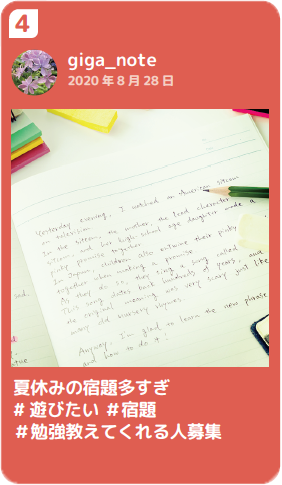 4
giga_note
2020年8月28日
Yesterday evening, I watched an American sitcom
on television.
In the sitcom, the mother, the lead character
and her high-school age daughter made a
pinky promise together.
In Japan, children also entwine their pinky
together when making a promise.
As they do so, they sing a song called
This song dates back hundreds of years, and
the original meaning was very scary just like
many old nursery rhymes.
Anyway, I'm glad to learn the new phrase
and how to do it!
夏休みの宿題多すぎ
#遊びたい #宿題
#勉強教えてくれる人募集